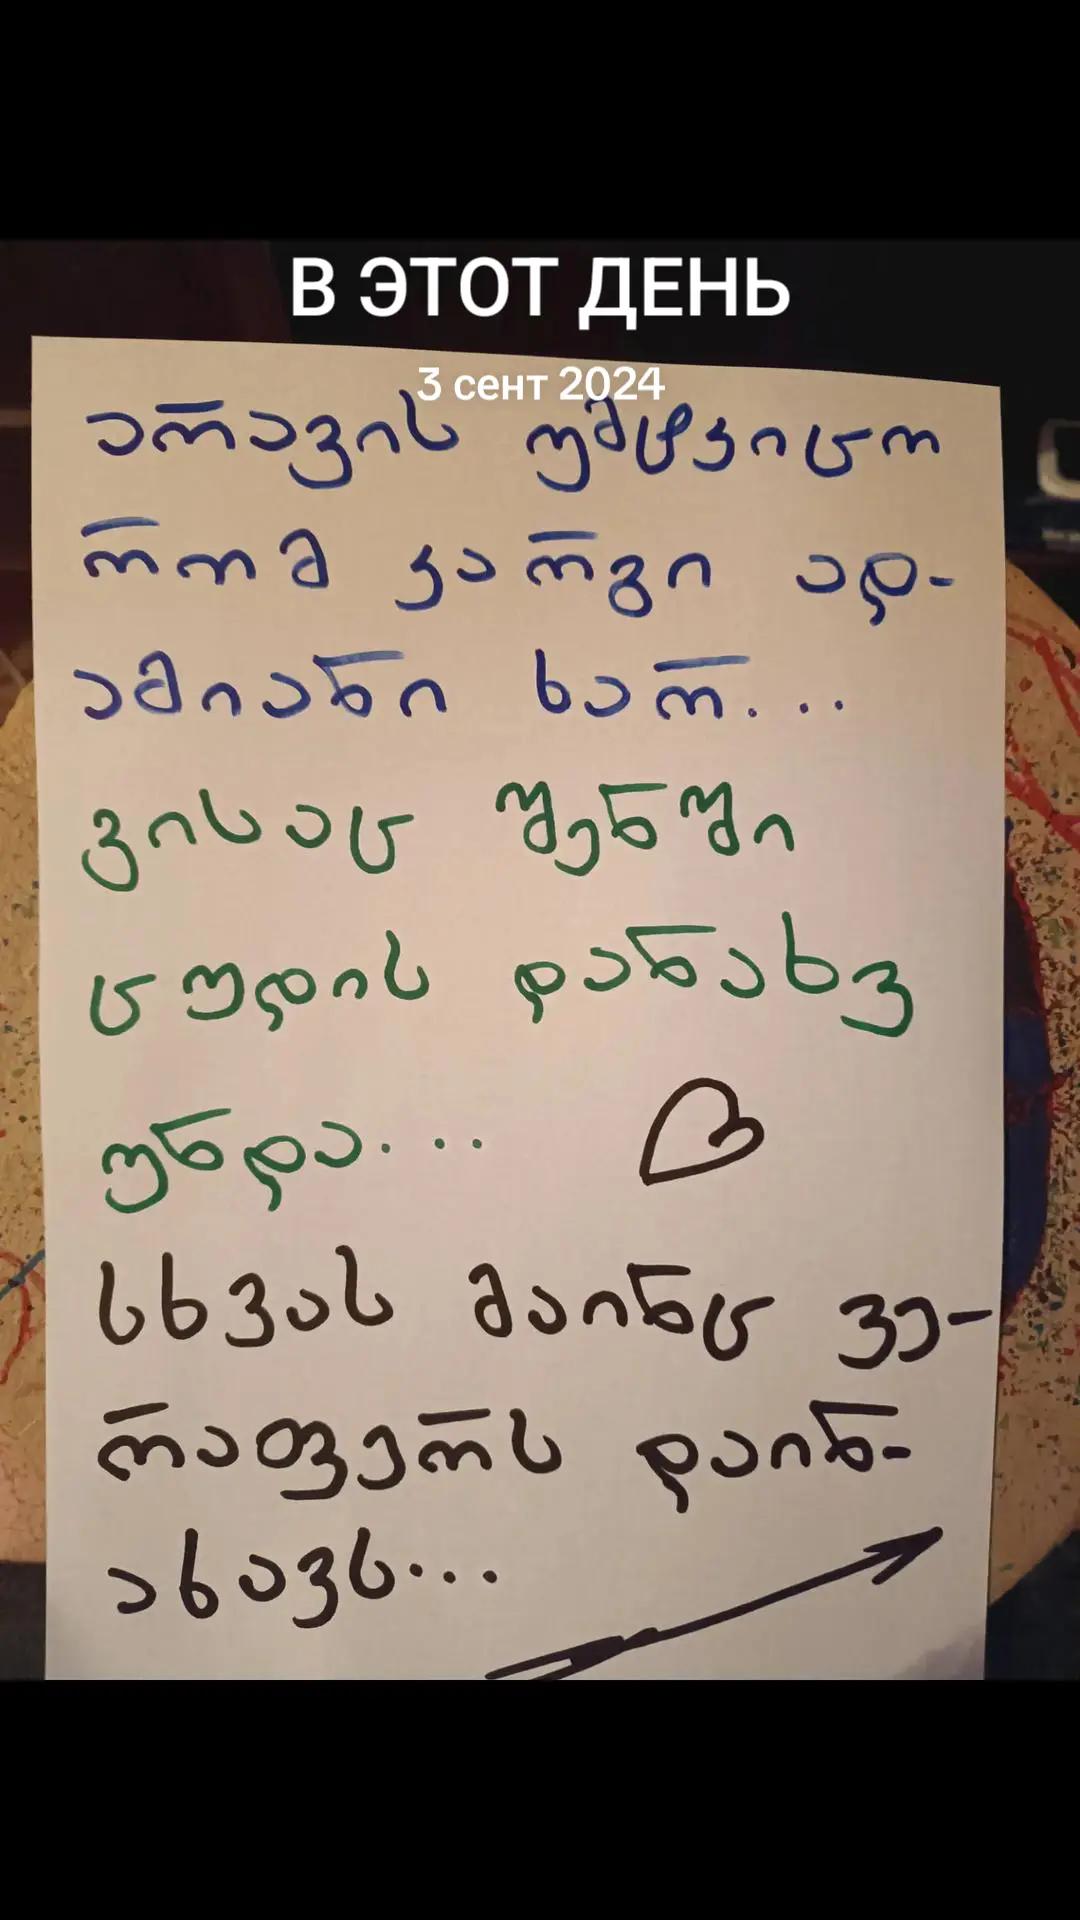 В ЭТОТ ДЕНЬ
3 сент 2024
არავის უმტკიცო
რომ კარგი ად-
ამიანი ხარ...
ვისაც შენში
ცუდის დანახვ
უნდა...
სხვას მაინც ვე-
რაფერს დაინ-
ახავს...